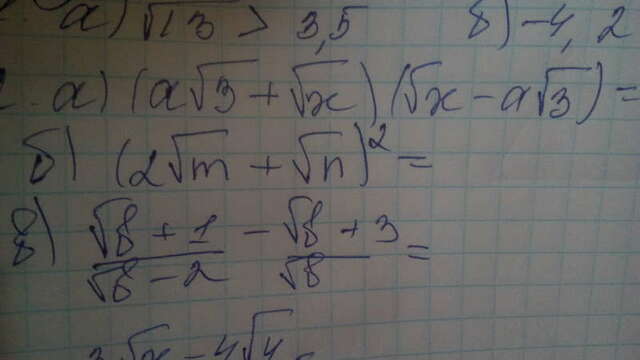 а) √13 > 3,5 б) -4,2
а) (a√3 + √x)(√x - a√3) =
б) (2√m + √n)² =
в) (√8 + 1)/(√8 - 2) - (√8 + 3)/√8 =
3√x - 4√4